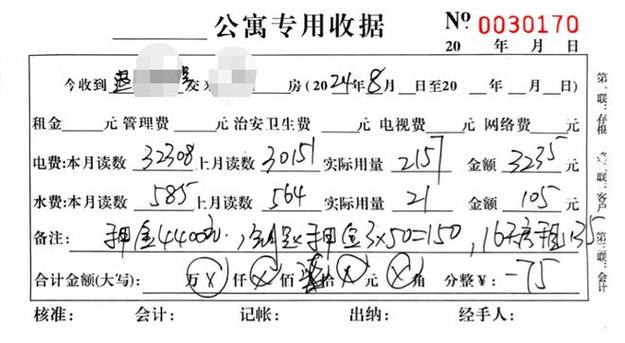 公寓专用收据 № 0030170
20 年 月 日
今收到 赵 交 房(2024年8月 日至20 年 月 日)
租金 元 管理费 元 治安卫生费 元 电视费 元 网络费 元
电费:本月读数 32308 上月读数 30151 实际用量 2157 金额 3235 元
水费:本月读数 585 上月读数 564 实际用量 21 金额 105 元
备注: 押金4400元, 押金3×50=150, 16 房租135
合计金额(大写): 万 ⓧ 仟 ⓧ 佰 拾 ⓧ 元 ⓧ 角 分整¥: -75
核准: 会计: 记帐: 出纳: 经手人:
第一联:存根 第二联:客户 第三联:会计